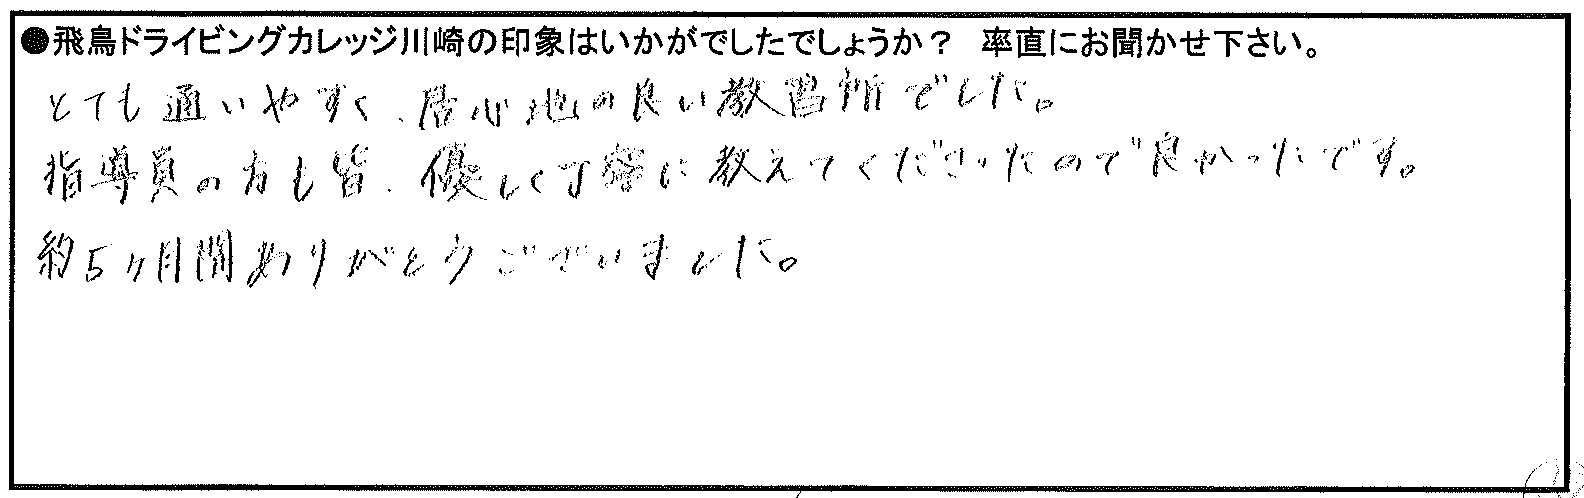 ●飛鳥ドライビングカレッジ川崎の印象はいかがでしたでしょうか？　率直にお聞かせ下さい。
とても通いやすく、居心地の良い教習所でした。
指導員の方も皆、優しく丁寧に教えてくださったので良かったです。
約5ヶ月間ありがとうございました。